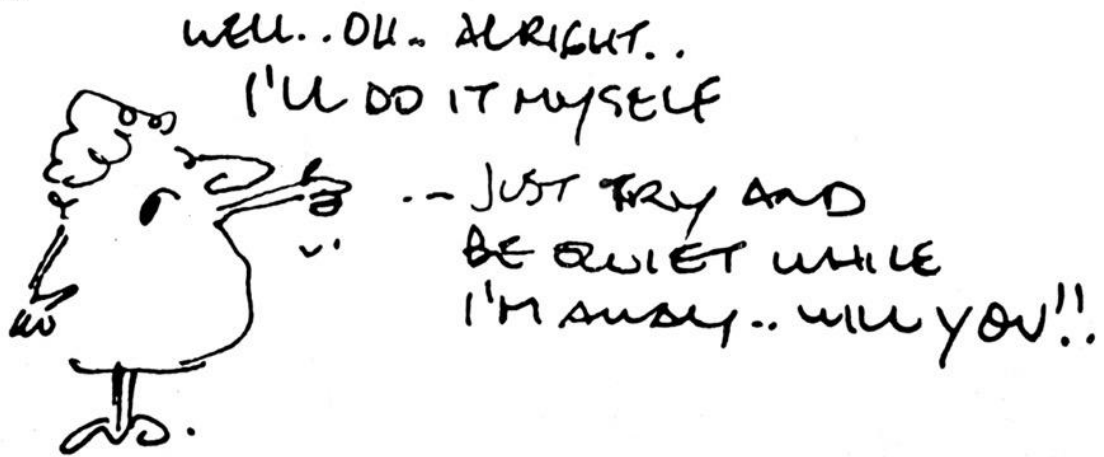 WELL.. OH.. ALRIGHT..
I'LL DO IT MYSELF
.. JUST TRY AND
BE QUIET WHILE
I'M AWAY.. WILL YOU!!